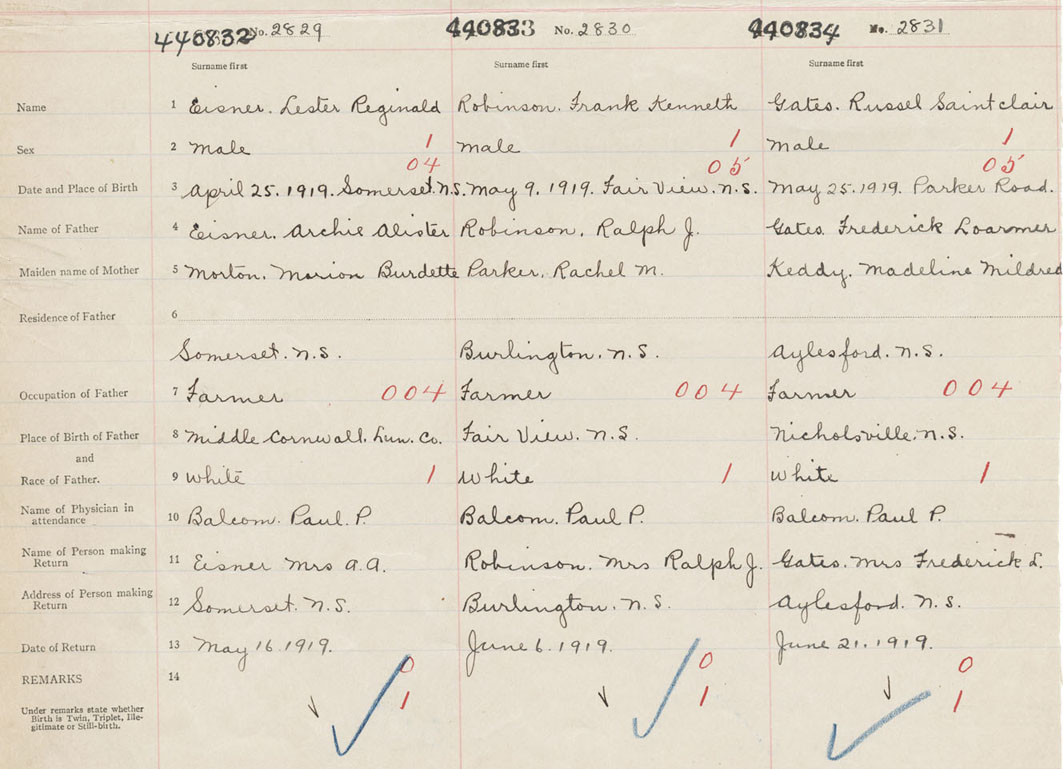 440832 No. 2829 440833 No. 2830 440834 No. 2831
Surname first Surname first Surname first
Name 1 Eisner. Lester Reginald Robinson. Frank Kenneth Gates. Russel Saintclair
Sex 2 Male 1 male 1 male 1
04 05 05
Date and Place of Birth 3 April 25. 1919. Somerset. N.S. May 9. 1919. Fair View. N.S. May 25. 1919. Parker Road.
Name of Father 4 Eisner. Archie Alister Robinson. Ralph J. Gates. Frederick Loarmer
Maiden name of Mother 5 Morton. Marion Burdette Parker. Rachel M. Keddy. Madeline Mildred
Residence of Father 6
Somerset. N.S. Burlington. N.S. Aylesford. N.S.
Occupation of Father 7 Farmer 004 Farmer 004 Farmer 004
Place of Birth of Father 8 Middle Cornwall. Lun. Co. Fair View. N.S. Nicholsville. N.S.
and
Race of Father. 9 White 1 White 1 White 1
Name of Physician in
attendance 10 Balcom. Paul. P. Balcom. Paul P. Balcom. Paul P.
Name of Person making
Return 11 Eisner Mrs A.A. Robinson. Mrs Ralph J. Gates. Mrs Frederick L.
Address of Person making
Return 12 Somerset. N.S. Burlington. N.S. Aylesford. N.S.
Date of Return 13 May 16. 1919. June 6. 1919. June 21. 1919.
REMARKS 14 0 0 0
1 1 1
Under remarks state whether
Birth is Twin, Triplet, Ille-
gitimate or Still-birth.